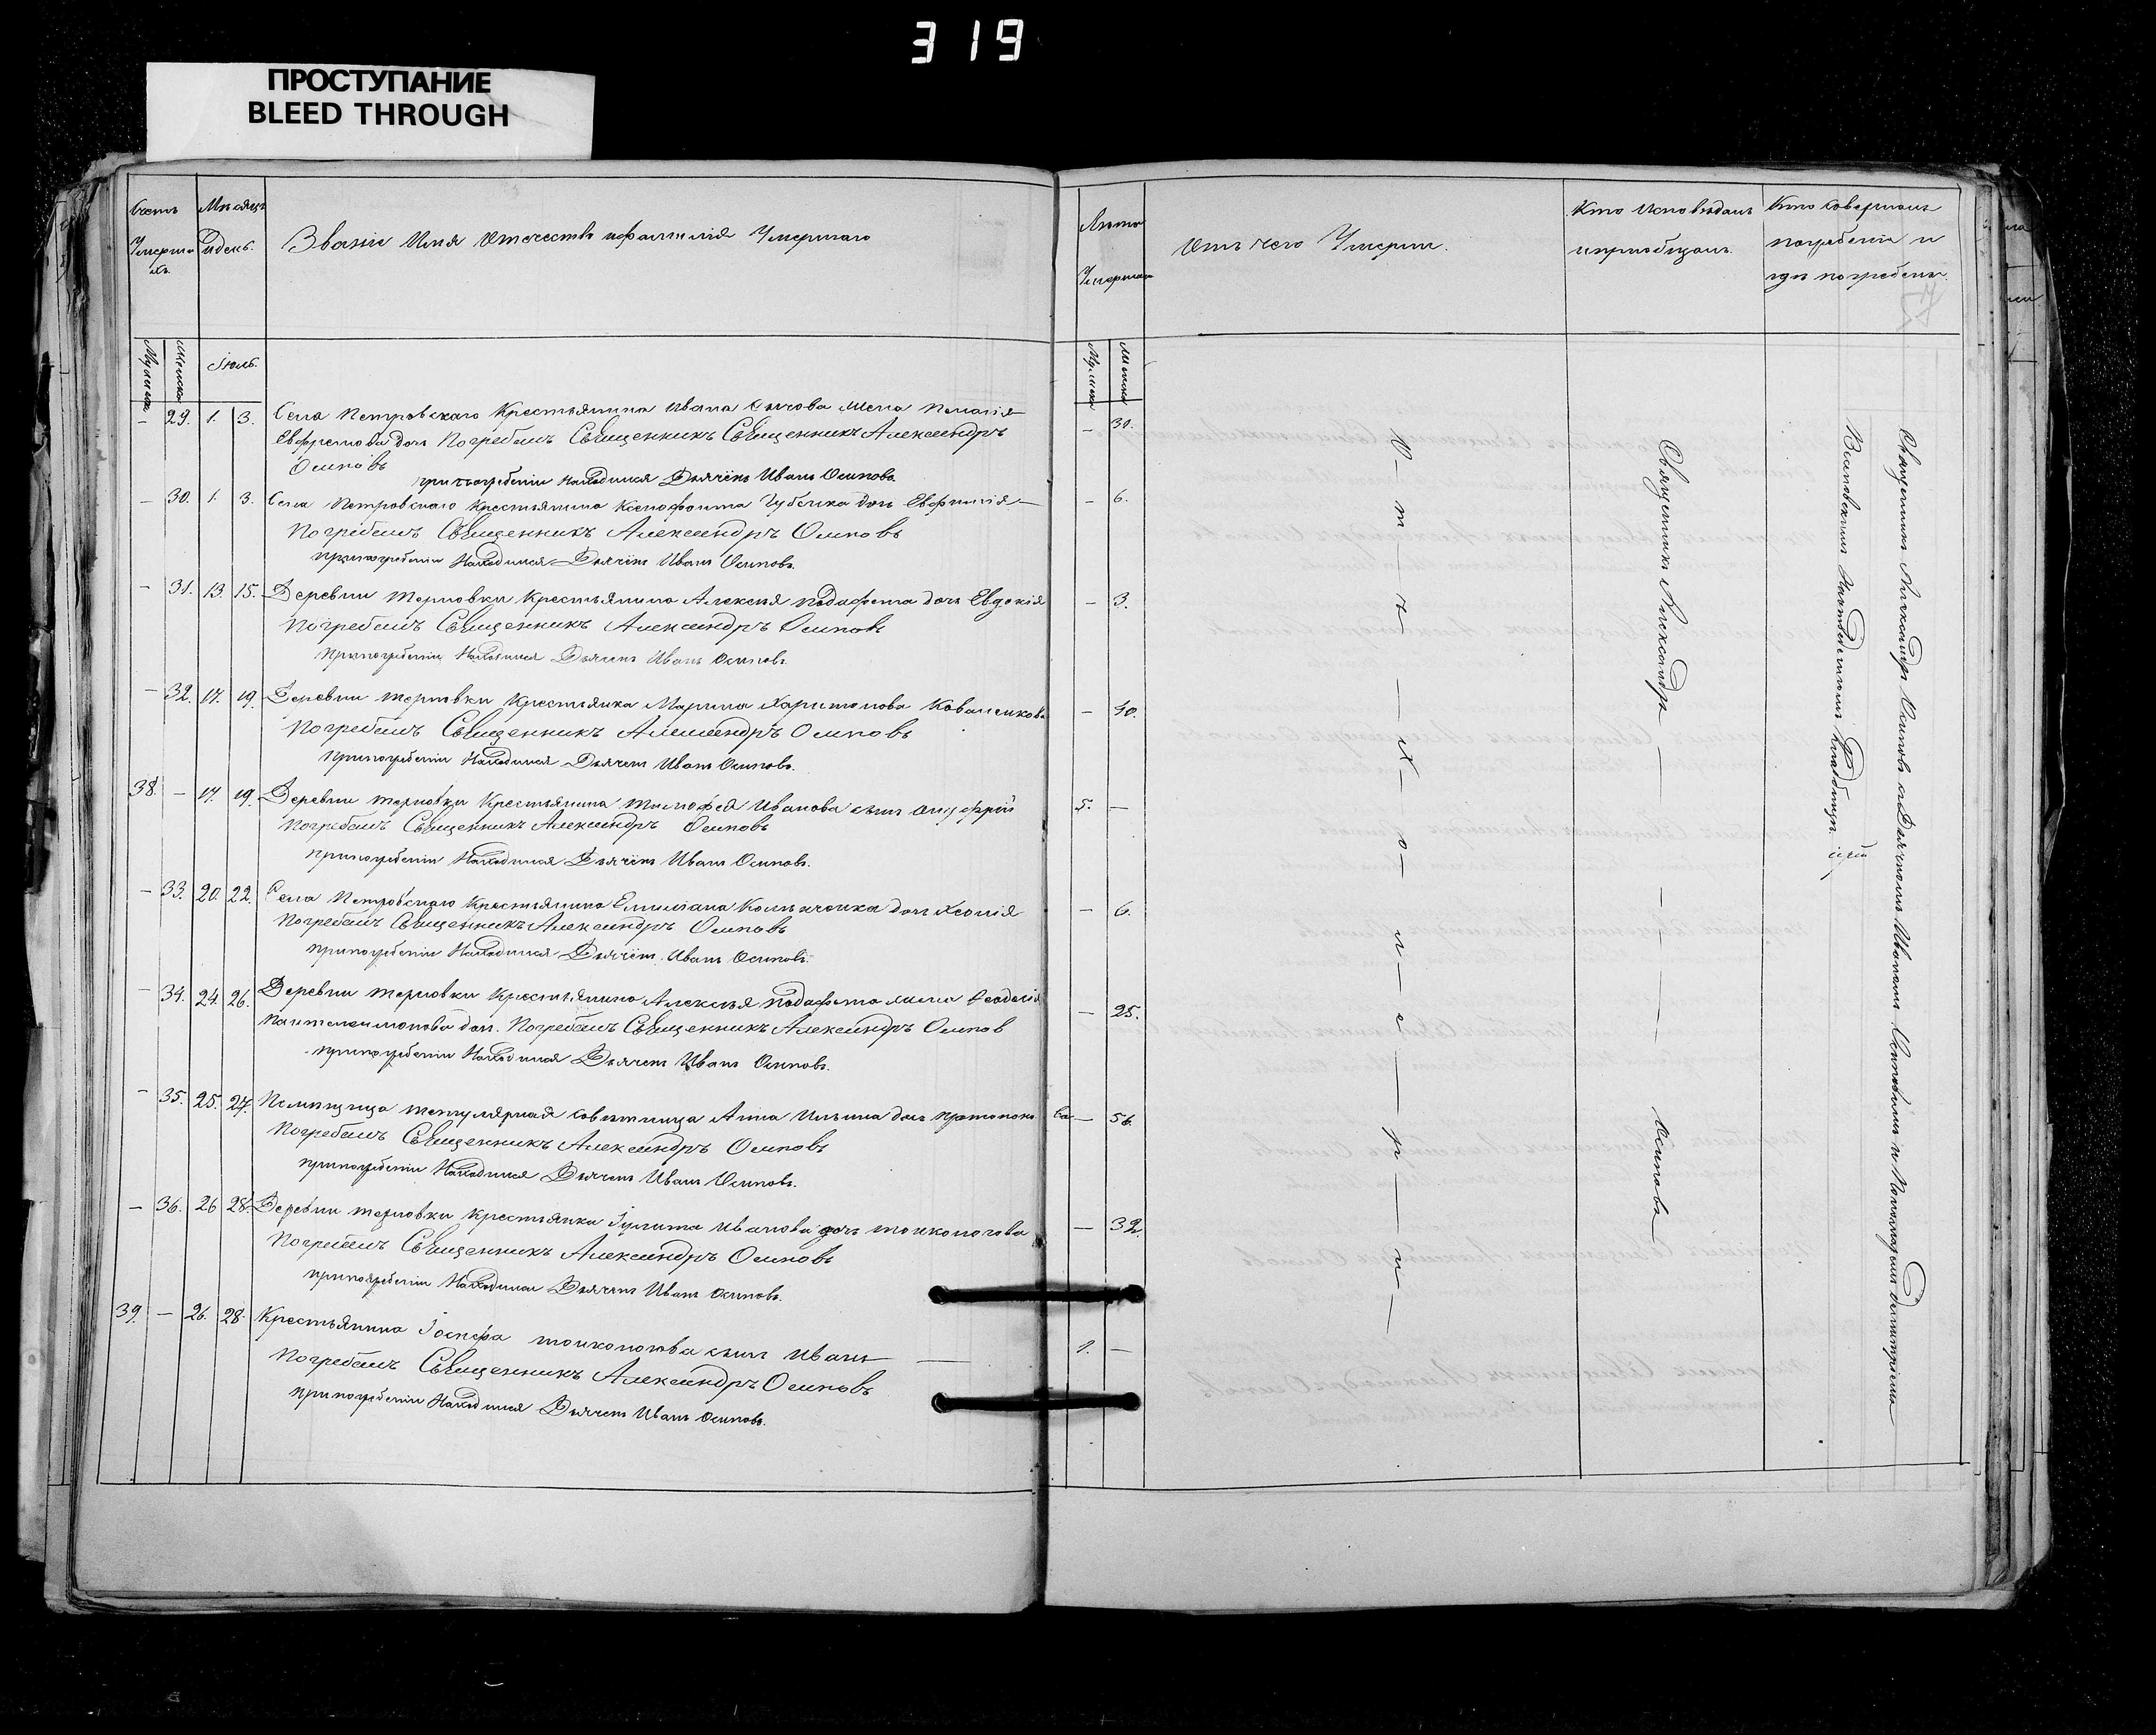 319
ПРОСТУПАНИЕ
BLEED THROUGH
Счетъ Умершихъ
Мѣсяцъ и день.
Званіе Имя Отечество и фамилія Умершаго
Мужеска Женска
Іюль.
– 29. 1. 3. Села Петровскаго Крестьянина Ивана Сычова жена Пелагія
Евфремова дочь Погребалъ Священникъ Священникъ Александръ
Осиповъ
при погребеніи Находился Дьячёкъ Иванъ Осиповъ.
– 30. 1. 3. Села Петровскаго Крестьянина Ксенофонта Губенка дочь Евфимія
Погребалъ Священникъ Александръ Осиповъ
При погребеніи Находился Дьячёкъ Иванъ Осиповъ.
– 31. 13. 15. Деревни Терновки Крестьянина Алексѣя дочь Евдокія
Погребалъ Священникъ Александръ Осиповъ
При погребеніи Находился Дьячекъ Иванъ Осиповъ.
– 32. 17. 19. Деревни Терновки Крестьянка Марина Харитонова Коваленкова
Погребалъ Священникъ Александръ Осиповъ
При погребеніи Находился Дьячекъ Иванъ Осиповъ.
38. – 17. 19. Деревни Терновки Крестьянина Тимофея Иванова сынъ
Погребалъ Священникъ Александръ Осиповъ
При погребеніи Находился Дьячёкъ Иванъ Осиповъ.
– 33. 20. 22. Села Петровскаго Крестьянина Емиліана дочь
Погребалъ Священникъ Александръ Осиповъ
При погребеніи Находился Дьячёкъ Иванъ Осиповъ.
– 34. 24. 26. Деревни Терновки Крестьянина Алексѣя жена Феодосія
Пантелеимонова дочь. Погребалъ Священникъ Александръ Осипов
При погребеніи Находился Дьячекъ Иванъ Осиповъ.
– 35. 25. 27. Помѣщица титулярная совѣтница Анна Ильина дочь
Погребалъ Священникъ Александръ Осиповъ
При погребеніи Находился Дьячекъ Иванъ Осиповъ.
– 36. 26 28. Деревни Терновки Крестьянка Іулита Иванова дочь Тонконогова
Погребалъ Священникъ Александръ Осиповъ
При погребеніи Находился Дьячекъ Иванъ Осиповъ.
39. – 26. 28. Крестьянина Іосифа Тонконогова сынъ Иванъ
Погребалъ Священникъ Александръ Осиповъ
При погребеніи Находился Дьячекъ Иванъ Осиповъ.
Лѣта Умершаго
Отъ чего Умеръ.
Кто Исповѣдалъ
и приобщалъ.
Кто совершалъ
погребеніе и
гдѣ погребены
Мужеска Женска
– 30.
– 6.
– 3.
– 30.
5. –
– 6.
– 25.
– 56.
– 32.
1. –
О – т – ъ – х – о – л – е – р – и –
Священникъ Александръ Осиповъ
Священникъ Александръ Осиповъ съ Дьячкомъ Иваномъ Осиповымъ и Пономаремъ
кладбищѣ.